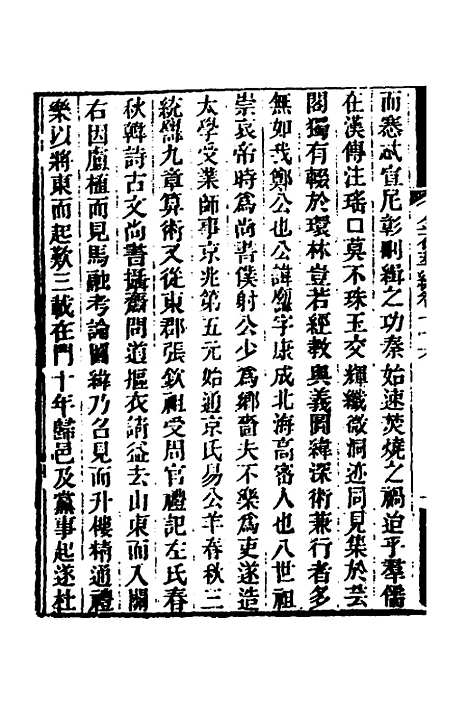 而悉試宣尼彰刪緝之功秦始速焚燒之禍迨乎羣儒
在漢傳注瑤口莫不珠玉交輝纖微洞迹同見集於芸
閣獨有輟於環林豈若經教與義圖緯深術兼行者多
無如我鄭公也公諱玄字康成北海高密人也八世祖
崇哀帝時爲尚書僕射公少爲鄉嗇夫不樂爲吏遂造
太學受業師事京兆第五元始通京氏易公羊春秋三
統曆九章算術又從東郡張欽祖受周官禮記左氏春
秋韓詩古文尚書攝齋問道摳衣請益去山東而入關
右因盧植而見馬融考論圖緯乃召見而升樓精通禮
樂以將東而起歎三載在門十年歸邑及黨事起遂杜